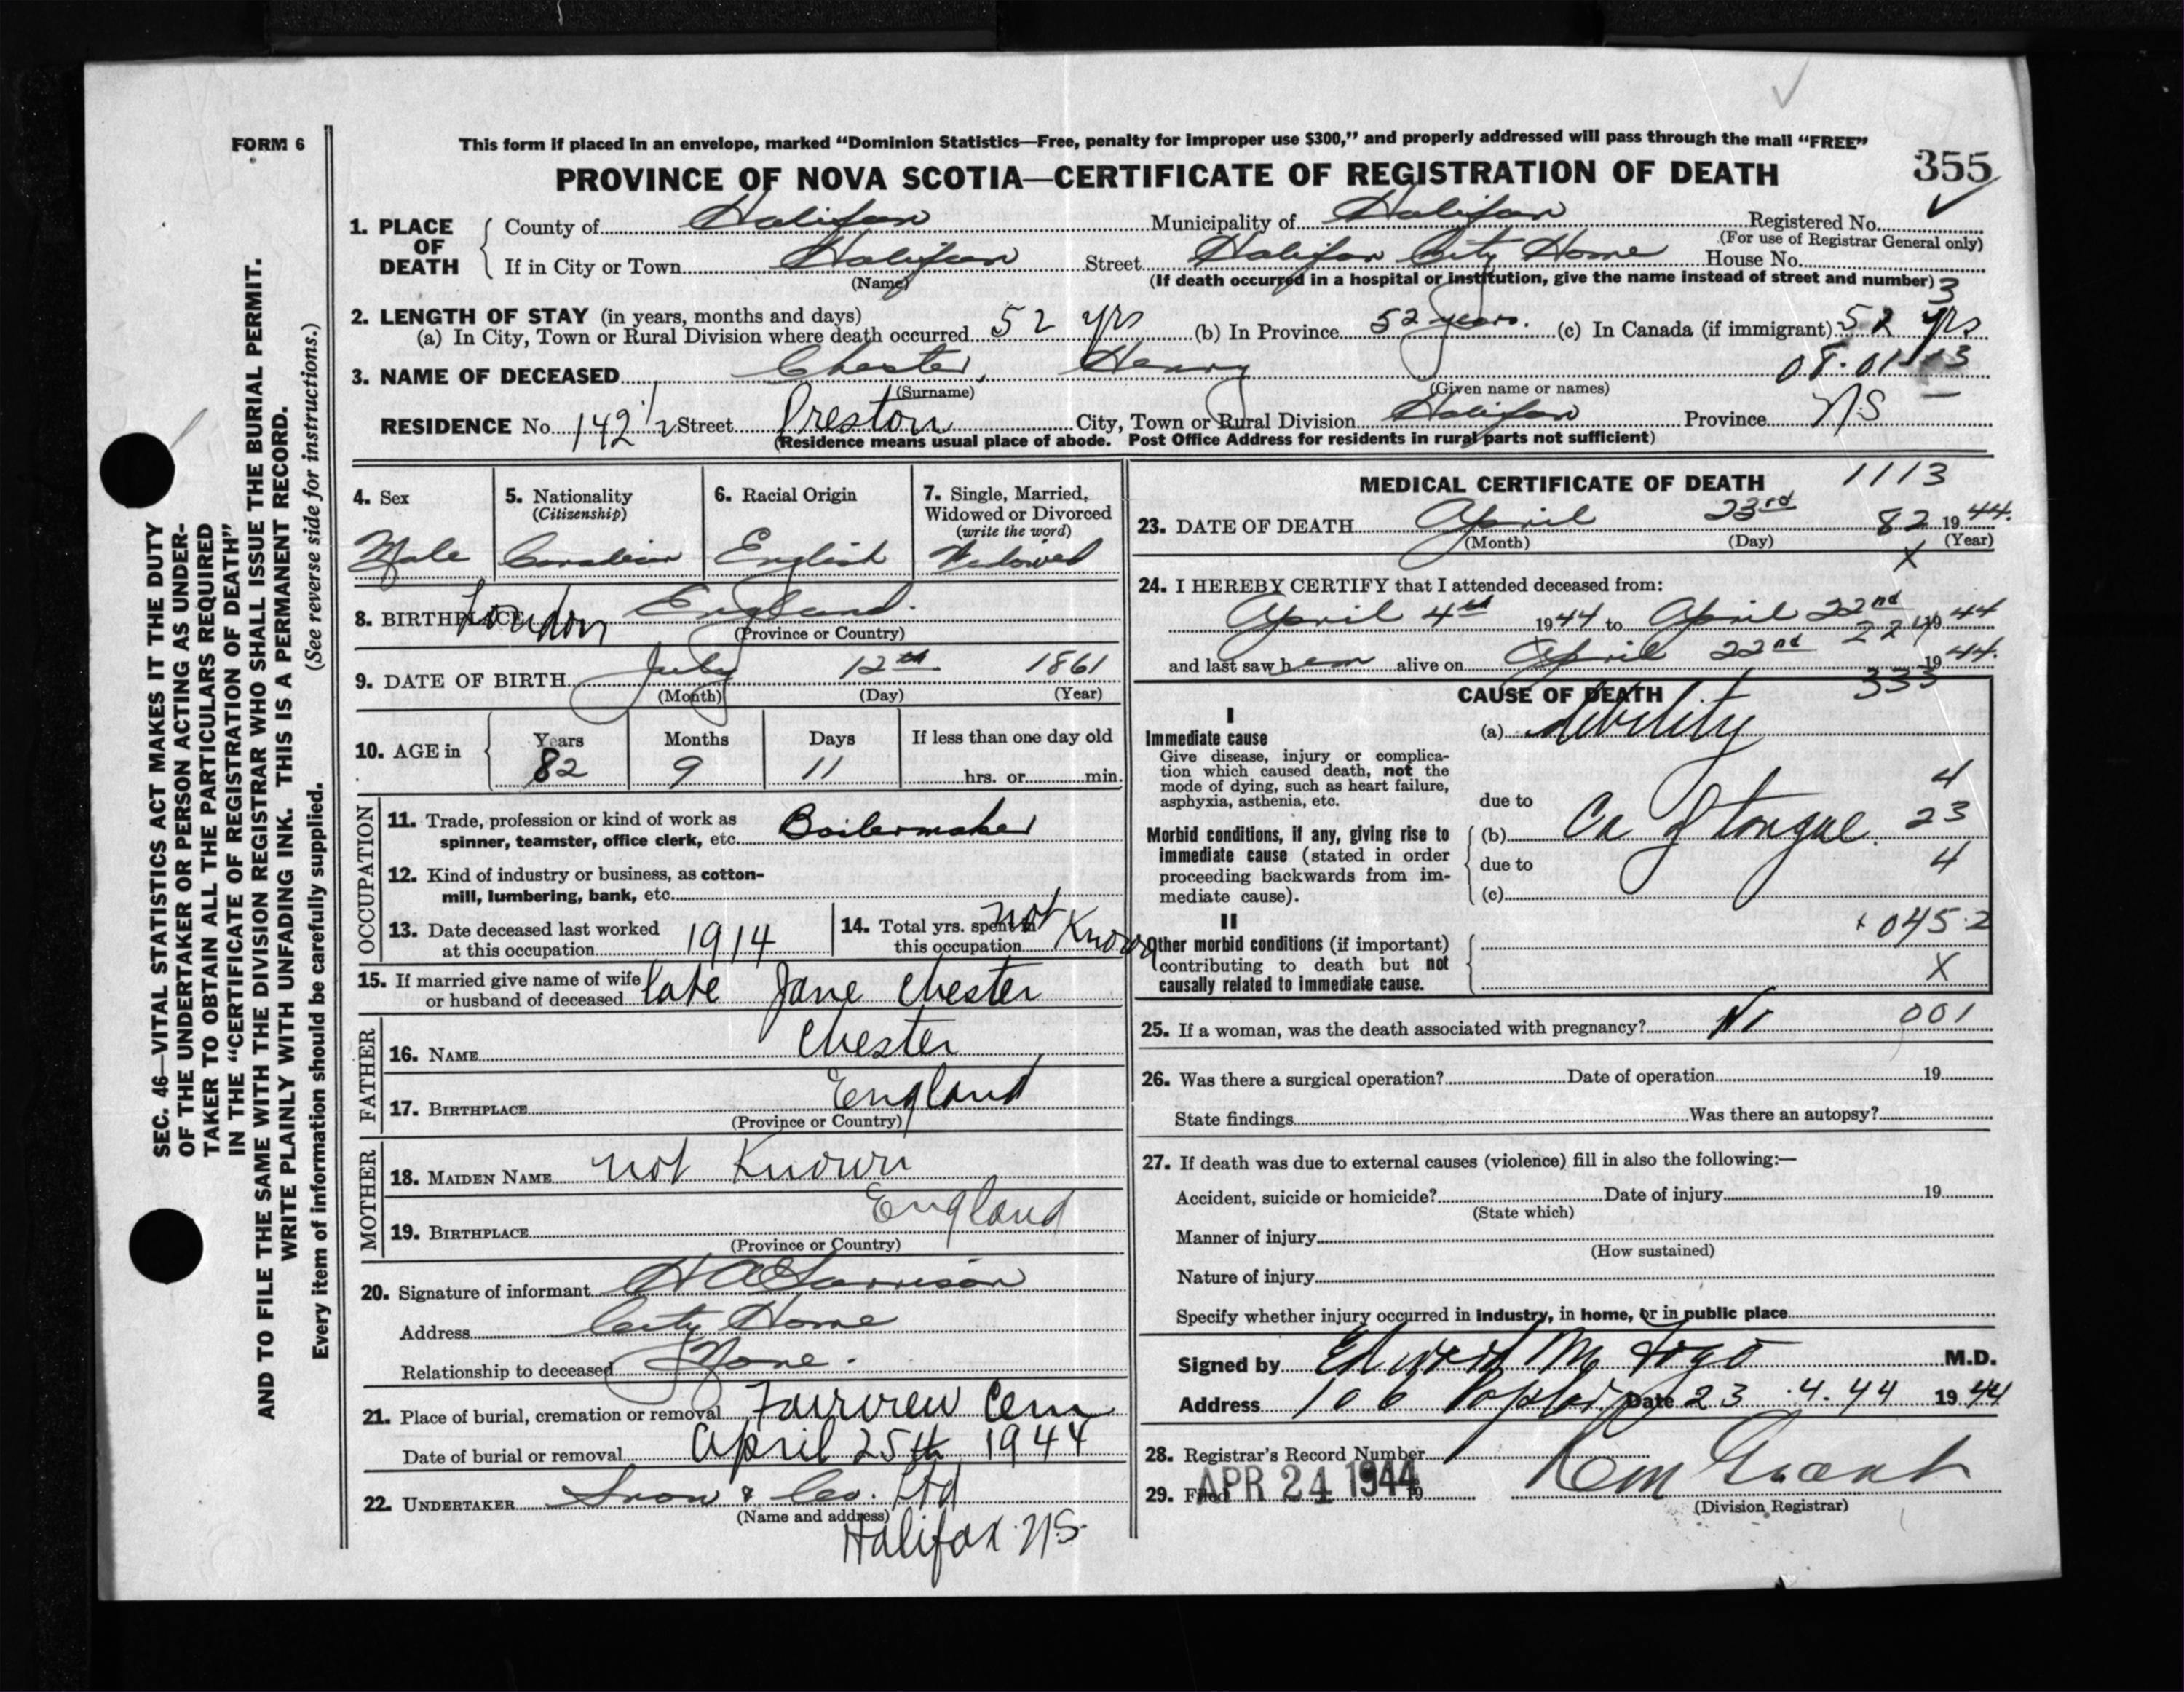 FORM 6
This form if placed in an envelope, marked “Dominion Statistics—Free, penalty for improper use $300,” and properly addressed will pass through the mail “FREE”
PROVINCE OF NOVA SCOTIA—CERTIFICATE OF REGISTRATION OF DEATH 355
1. PLACE OF DEATH { County of Halifax Municipality of Halifax Registered No.
(For use of Registrar General only)
If in City or Town Halifax Street Halifax City Home House No.
(Name) (If death occurred in a hospital or institution, give the name instead of street and number) 3
2. LENGTH OF STAY (in years, months and days)
(a) In City, Town or Rural Division where death occurred 52 yrs (b) In Province 52 years. (c) In Canada (if immigrant) 52 yrs
3. NAME OF DECEASED Chester, Henry
(Surname) (Given name or names)
RESIDENCE No. 142 1/2 Street Preston City, Town or Rural Division Halifax Province NS
(Residence means usual place of abode. Post Office Address for residents in rural parts not sufficient)
4. Sex 5. Nationality (Citizenship) 6. Racial Origin 7. Single, Married, Widowed or Divorced (write the word)
Male Canadian English Widowed
8. BIRTHPLACE London England.
(Province or Country)
9. DATE OF BIRTH July 12th 1861
(Month) (Day) (Year)
10. AGE in { Years Months Days If less than one day old
82 9 11 hrs. or min.
OCCUPATION
11. Trade, profession or kind of work as
spinner, teamster, office clerk, etc. Boilermaker
12. Kind of industry or business, as cotton-
mill, lumbering, bank, etc.
13. Date deceased last worked
at this occupation 1914
14. Total yrs. spent in
this occupation not Known
15. If married give name of wife
or husband of deceased late Jane Chester
FATHER
16. NAME Chester
17. BIRTHPLACE England
(Province or Country)
MOTHER
18. MAIDEN NAME not Known
19. BIRTHPLACE England
(Province or Country)
20. Signature of informant
Address City Home
Relationship to deceased None.
21. Place of burial, cremation or removal Fairview Cem
Date of burial or removal April 25th 1944
22. UNDERTAKER Snow & Co. Ltd
(Name and address)
Halifax NS.
MEDICAL CERTIFICATE OF DEATH 1113
23. DATE OF DEATH April 23rd 82 1944.
(Month) (Day) (Year)
X
24. I HEREBY CERTIFY that I attended deceased from:
April 4th 1944 to April 22nd 1944
and last saw h alive on April 22nd 1944.
CAUSE OF DEATH 333
I
Immediate cause
Give disease, injury or complica-
tion which caused death, not the
mode of dying, such as heart failure,
asphyxia, asthenia, etc.
(a) debility
due to 4
Morbid conditions, if any, giving rise to
immediate cause (stated in order
proceeding backwards from im-
mediate cause).
(b) Ca of tongue. 23
due to 4
(c)
II
Other morbid conditions (if important)
contributing to death but not
causally related to immediate cause.
045.2
X
25. If a woman, was the death associated with pregnancy? No 001
26. Was there a surgical operation? Date of operation 19
State findings Was there an autopsy?
27. If death was due to external causes (violence) fill in also the following:—
Accident, suicide or homicide? Date of injury 19
(State which)
Manner of injury
(How sustained)
Nature of injury
Specify whether injury occurred in industry, in home, or in public place
Signed by Edward M Fogo M.D.
Address 106 Poplar Date 23.4.44 1944
28. Registrar's Record Number
29. Filed APR 24 1944 19
(Division Registrar)
SEC. 46—VITAL STATISTICS ACT MAKES IT THE DUTY
OF THE UNDERTAKER OR PERSON ACTING AS UNDER-
TAKER TO OBTAIN ALL THE PARTICULARS REQUIRED
IN THE “CERTIFICATE OF REGISTRATION OF DEATH”
AND TO FILE THE SAME WITH THE DIVISION REGISTRAR WHO SHALL ISSUE THE BURIAL PERMIT.
WRITE PLAINLY WITH UNFADING INK. THIS IS A PERMANENT RECORD.
Every item of information should be carefully supplied. (See reverse side for instructions.)